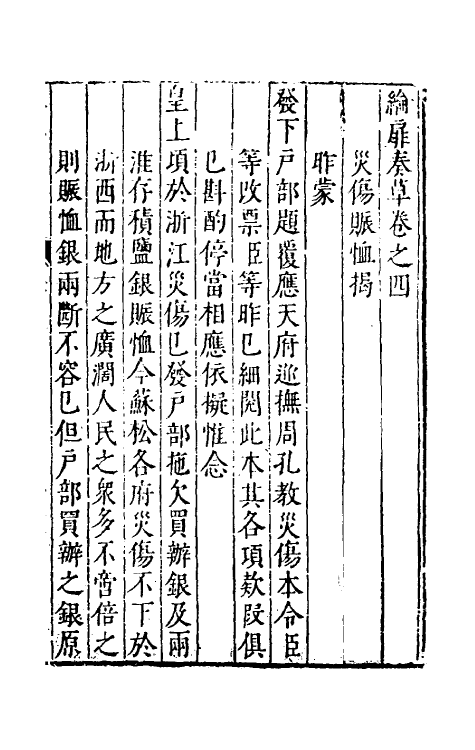 綸扉奏草卷之四
災傷賑恤揭
昨蒙
發下戶部題覆應天府巡撫周孔教災傷本令臣
等改票臣等昨已細閱此本其各項欵叚俱
已斟酌停當相應依擬惟念
皇上項於浙江災傷已發戶部拖欠買辦銀及兩
淮存積鹽銀賑恤今蘇松各府災傷不下於
浙西而地方之廣濶人民之衆多不啻倍之
則賑恤銀兩斷不容已但戶部買辦之銀原